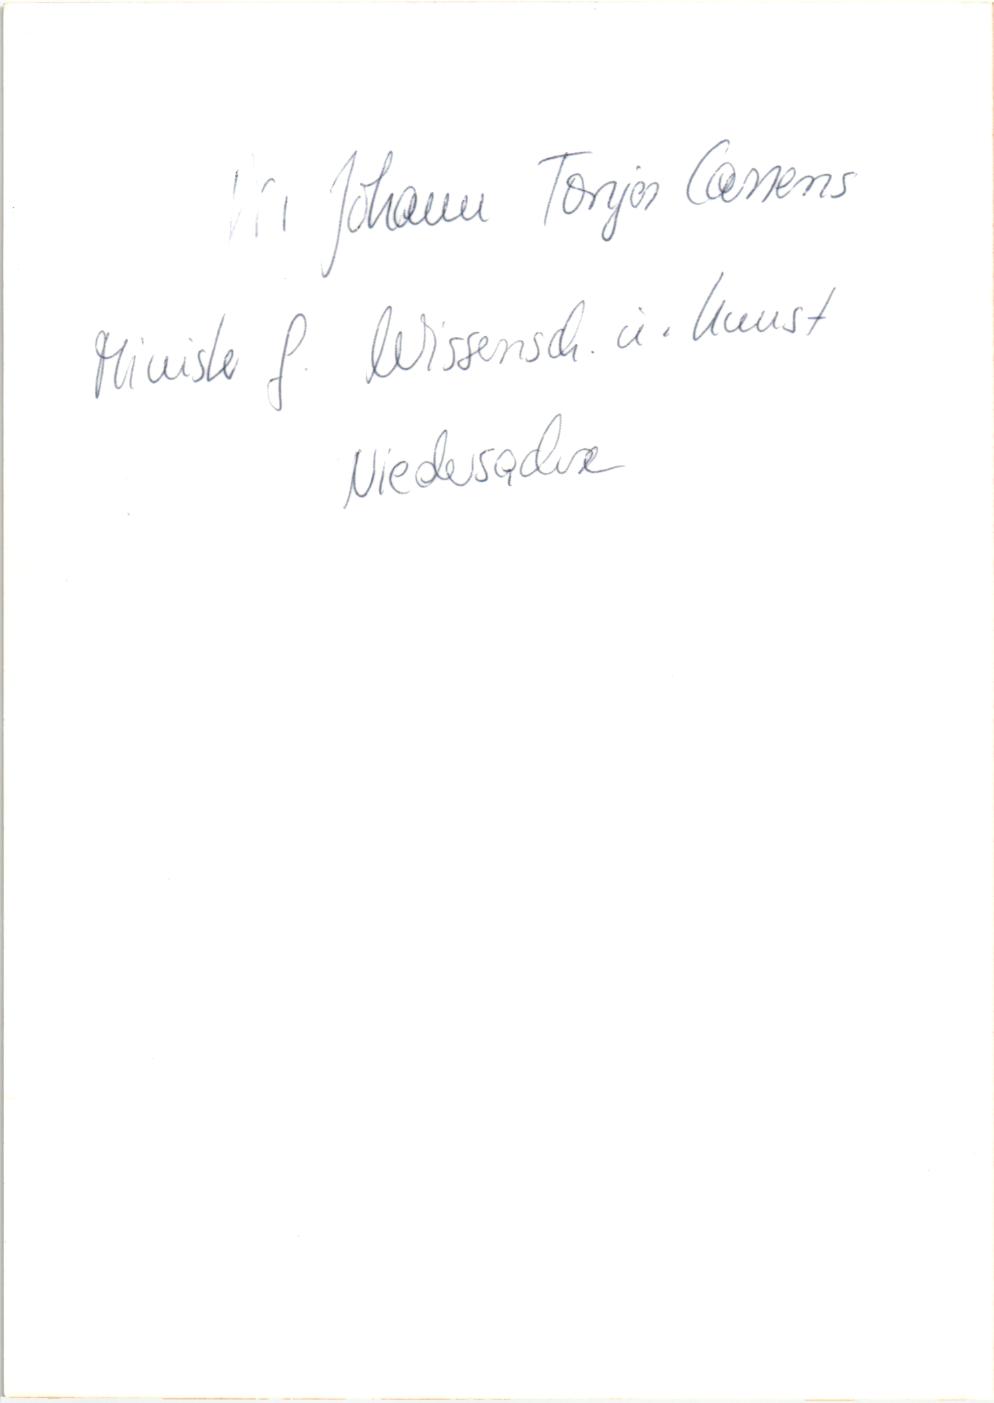 Johann Tönjes Cassens
Minister f. Wissensch. u. Kunst
Niedersachsen